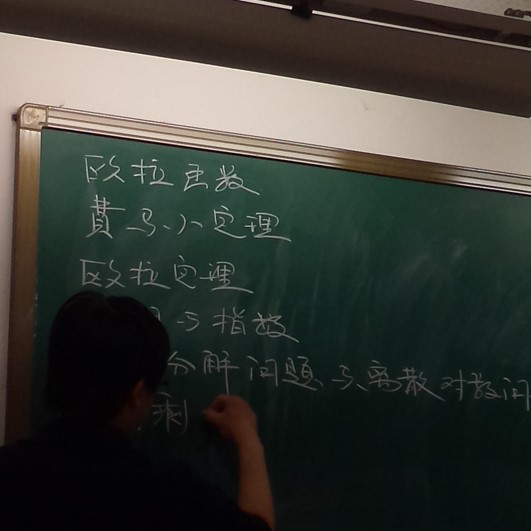 欧拉函数
费马小定理
欧拉定理
与指数
分解问题与离散对数问
剩